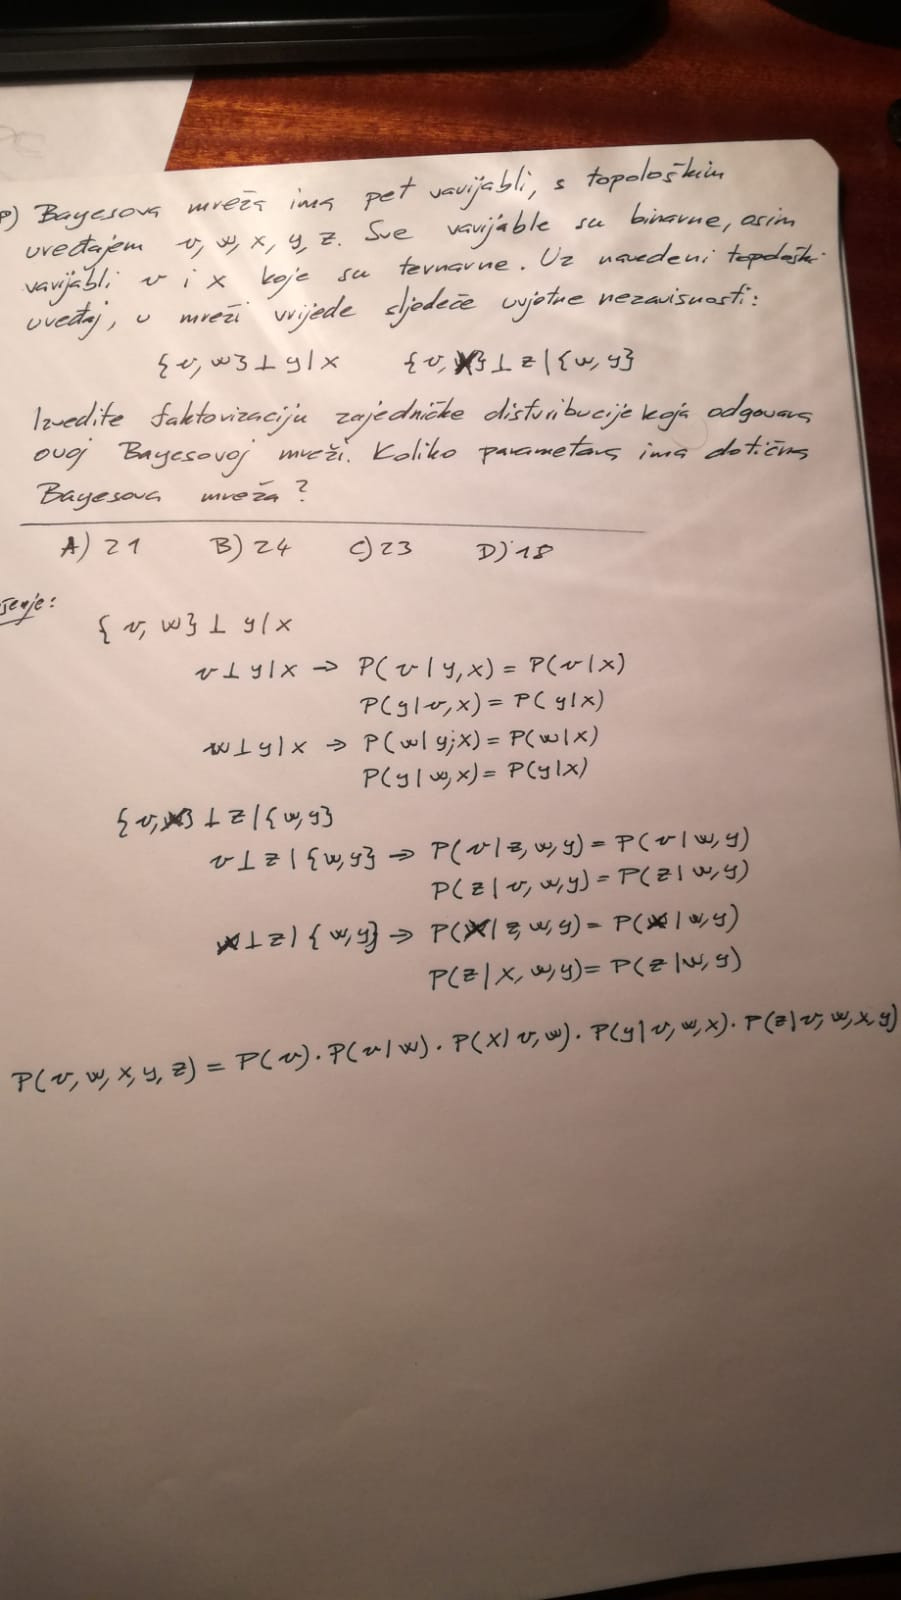 P) Bayesova mreža ima pet varijabli, s topološkim
uređajem v, w, x, y, z. Sve varijable su binarne, osim
varijabli v i x koje su ternarne. Uz navedeni topološki
uređaj, u mreži vrijede sljedeće uvjetne nezavisnosti:
{v, w} ⊥ y | x {v, x} ⊥ z | {w, y}
Izvedite faktorizaciju zajedničke distribucije koja odgovara
ovoj Bayesovoj mreži. Koliko parametara ima dotična
Bayesova mreža?
A) 21 B) 24 C) 23 D) 18
šenje:
{v, w} ⊥ y | x
v ⊥ y | x → P(v | y, x) = P(v | x)
P(y | v, x) = P(y | x)
w ⊥ y | x → P(w | y, x) = P(w | x)
P(y | w, x) = P(y | x)
{v, x} ⊥ z | {w, y}
v ⊥ z | {w, y} → P(v | z, w, y) = P(v | w, y)
P(z | v, w, y) = P(z | w, y)
x ⊥ z | {w, y} → P(x | z, w, y) = P(x | w, y)
P(z | x, w, y) = P(z | w, y)
P(v, w, x, y, z) = P(v) · P(v | w) · P(x | v, w) · P(y | v, w, x) · P(z | v, w, x, y)